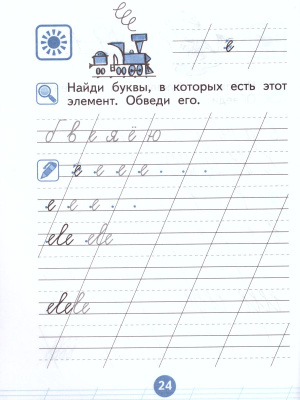 е
Найди буквы, в которых есть этот
элемент. Обведи его.
б в е я ё ю
е е е е
е е е
еве еве
евеве
24